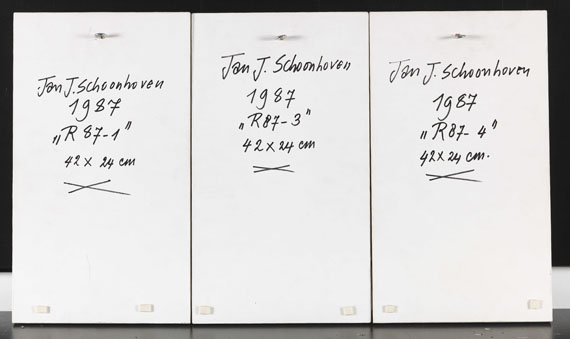 Jan J. Schoonhoven
1987
„R 87-1"
42 x 24 cm
Jan J. Schoonhoven
1987
„R87-3"
42 x 24 cm
Jan J. Schoonhoven
1987
„R87-4"
42 x 24 cm.